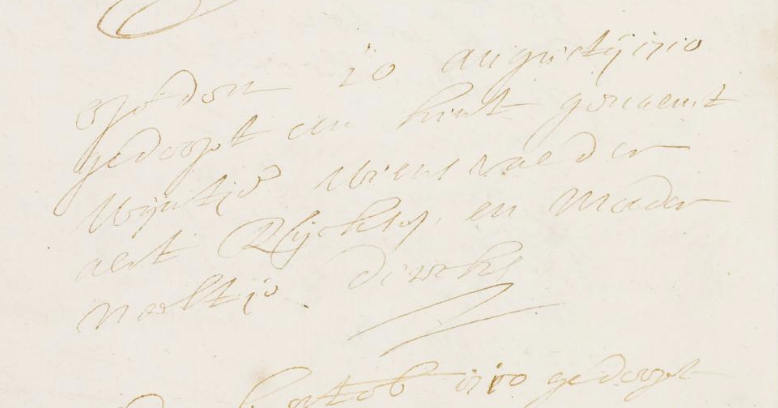 op den 10 augustij 1710
gedoopt een kint genaemt
Wijntje wiens vaeder
aert Rijckse, en moder
neeltje dircks
octob 1710 gedoopt